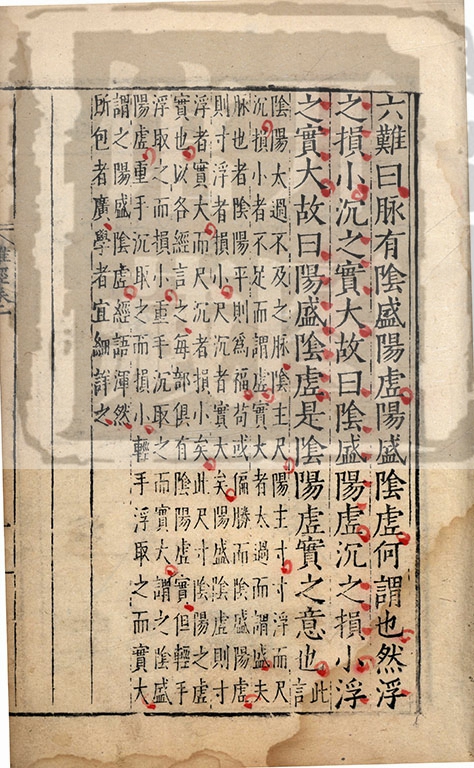 六難曰脉有陰盛陽虛陽盛陰虛何謂也然浮
之損小沉之實大故曰陰盛陽虛沉之損小浮
之實大故曰陽盛陰虛是陰陽虛實之意也此言
陰陽太過不及之脉陰主尺陽主寸寸浮而尺
沉損小者不足而謂虛實大者太過而謂盛夫
脉也者陰陽平則為福苟或偏勝而陰盛陽虛
則寸浮者損小尺沉者實大矣陽盛陰虛則寸
浮者實大而尺沉者損小矣此尺寸陰陽之虛
實也以各經言之每部俱有陰陽虛實但輕手
浮取之而損小重手沉取之而實大謂之陰盛
陽虛重手沉取之而損小輕手浮取之而實大
謂之陽盛陰虛經語渾然
所包者廣學者宜細詳之